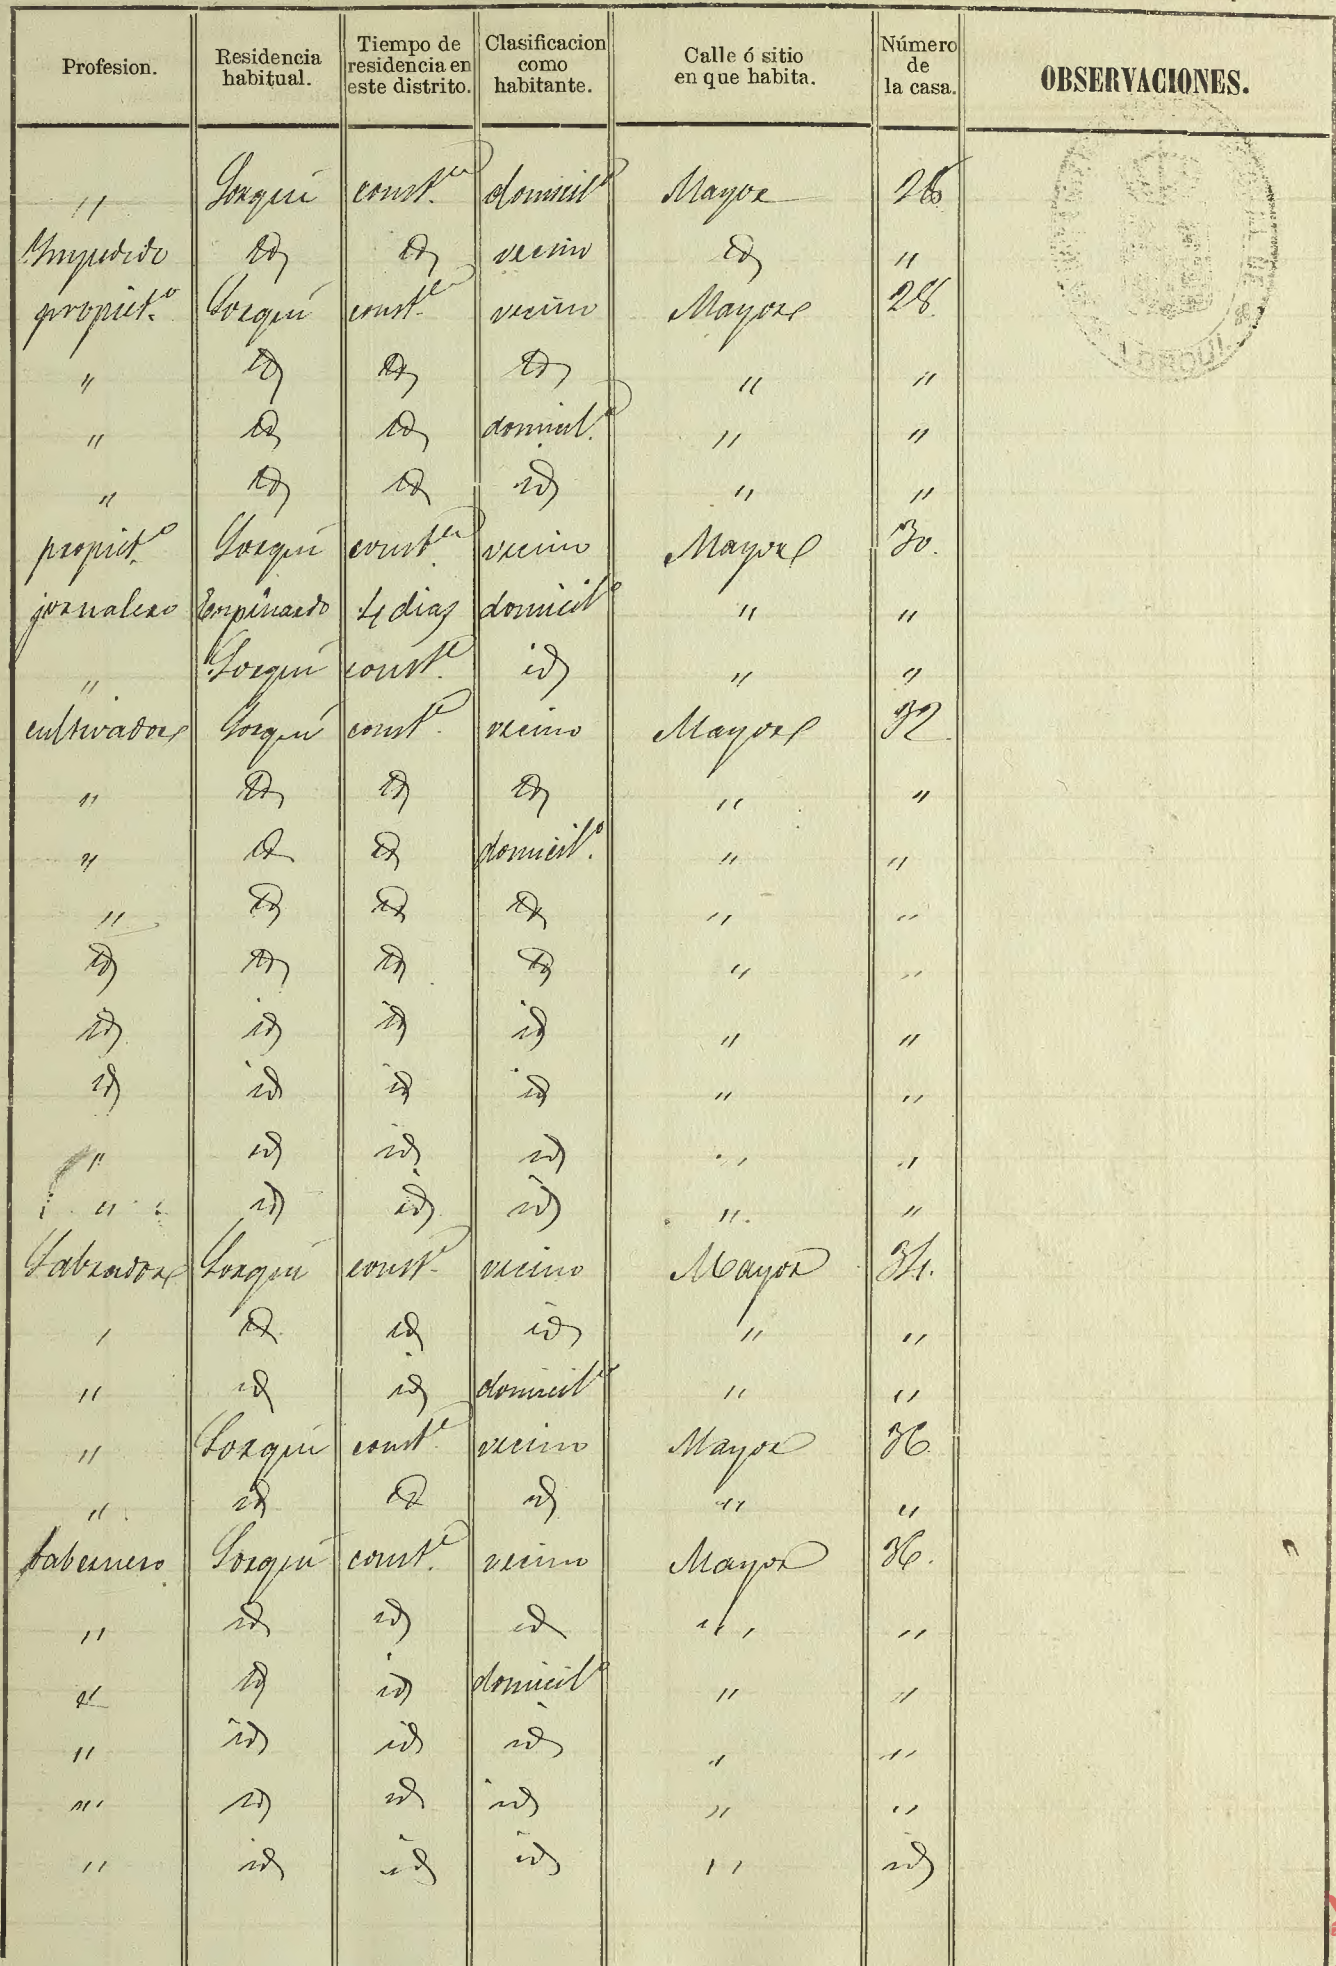 Profesion. Residencia habitual. Tiempo de residencia en este distrito. Clasificacion como habitante. Calle ó sitio en que habita. Número de la casa. OBSERVACIONES.
LORQUI
" Lorquí const.e domicil.o Mayor 26
Impedido id id vecino id "
propiet.o Lorquí const.e vecino Mayor 28.
" id id id " "
" id id domicil.o " "
" id id id " "
propiet.o Lorquí const.e vecino Mayor 30.
jornalero Espinardo 4 dias domicil.o " "
" Lorquí const.e id " "
cultivador Lorquí const.e vecino Mayor 32.
" id id id " "
" id id domicil.o " "
" id id id " "
id id id id " "
id id id id " "
id id id id " "
" id id id " "
" id id id " "
Labrador Lorquí const.e vecino Mayor 34.
" id id id " "
" id id domicil.o " "
" Lorquí const.e vecino Mayor 36
" id id id " "
tabernero Lorquí const.e vecino Mayor 36.
" id id id " "
" id id domicil.o " "
" id id id " "
" id id id " "
" id id id " id